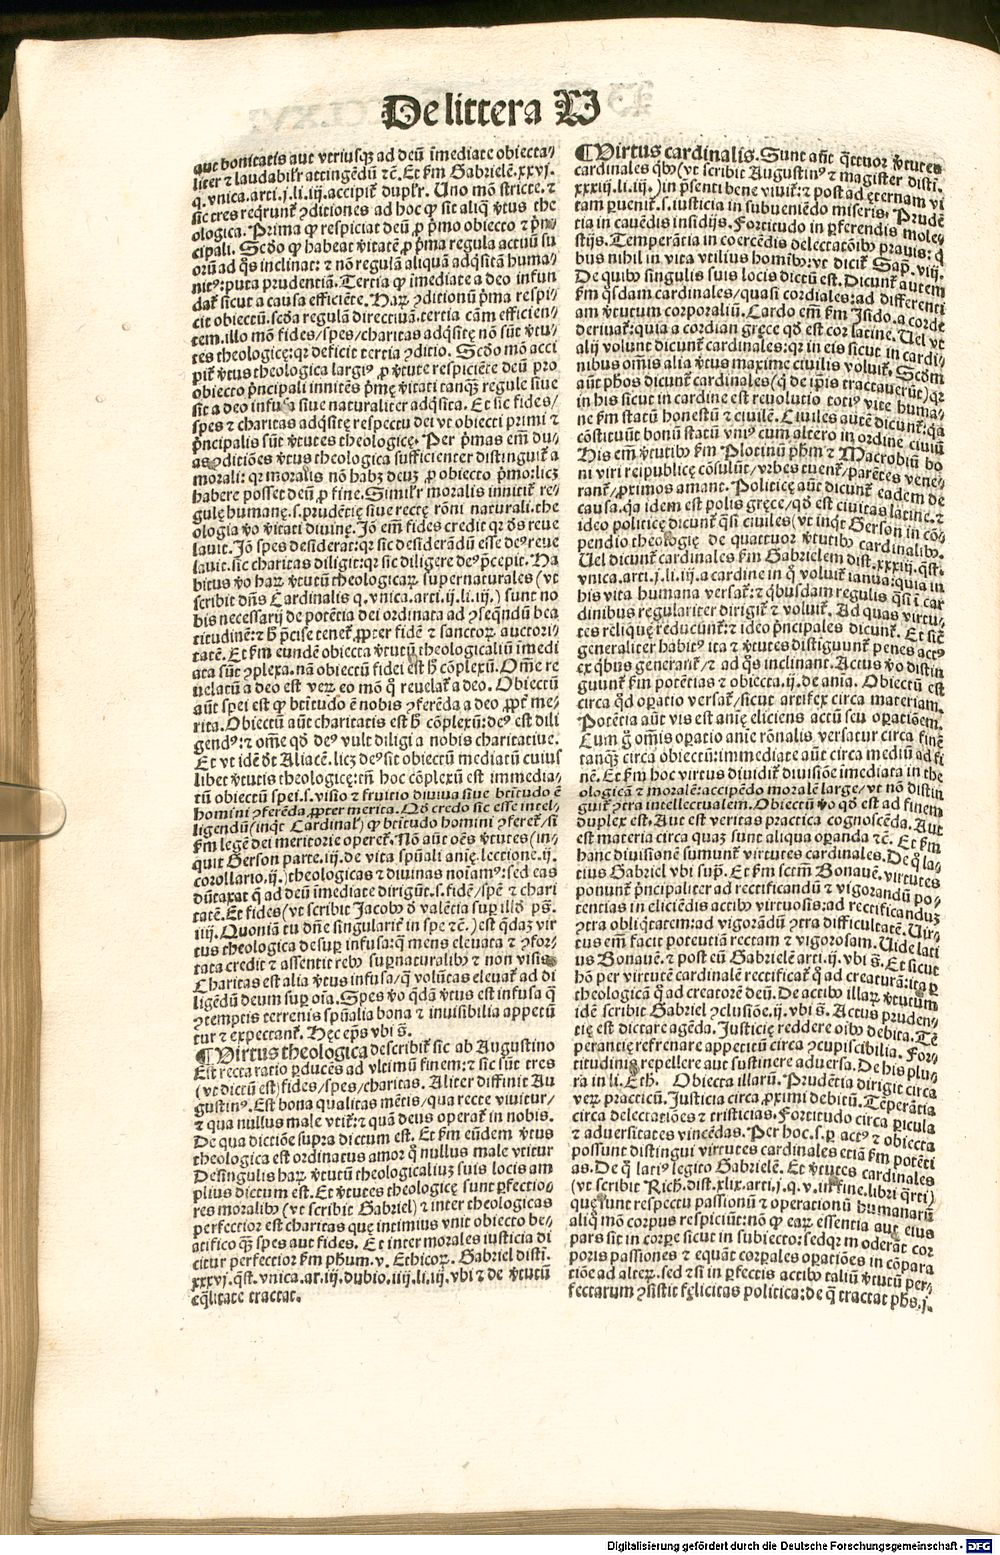 De littera V
aut bonitatis aut vtriusqꝫ ad deū īmediate obiecta/
liter ⁊ laudabilr̄ attingēdū ⁊c̄. Et ẜm Gabrielē.xxvj.
q.vnica.arti.j.li.iij.accipit᷑ duplr̄. Uno mō stricte.⁊
sic tres reqrunt᷑ ꝯditiones ad hoc ꝙ sit aliq̄ v̄tus the
ologica. Prima ꝙ respiciat deū ꝓ p̄mo obiecto ⁊ p̄n/
cipali. Scd̄o ꝙ habeat v̄itatē ꝓ p̄ma regula actuū su
orū ad q̊s inclinat: ⁊ nō regulā aliquā adq̄sitā huma/
nit⁹:puta prudentiā. Tertia ꝙ īmediate a deo infun
dat᷑ sicut a causa efficiēte. Haꝝ ꝯditionū p̄ma respi/
cit obiectū.scd̄a regulā directiuā.tertia cām efficien/
tem.illo mō fides/spes/charitas adq̄sitę nō sūt v̄tu/
tes theologicę:qꝛ deficit tertia ꝯditio. Scd̄o mō acci
pit᷑ v̄tus theologica largi⁹ ꝓ v̄tute respiciēte deū pro
obiecto p̄ncipali innitēs p̄mę v̄itati tanqꝫ regule siue
sit a deo infusa siue naturaliter adq̄sita. Et sic fides/
spes ⁊ charitas adq̄sitę respectu dei vt obiecti primi ⁊
p̄ncipalis sūt v̄tutes theologicę. Per p̄mas em̄ du/
as ꝯditiōes v̄tus theologica sufficienter distinguit᷑ a
morali: qꝛ moralis nō habꝫ deuꝫ ꝓ obiecto p̄mo:licꝫ
habere posset deū ꝓ fine. Similr̄ moralis innitit᷑ re/
gulę humanę.s.prudētię siue rectę rōni naturali.the
ologia v̄o v̄itati diuinę. Iō em̄ fides credit qꝛ de⁹ reue
lauit. Iō spes desiderat:qꝛ sic desiderādū esse de⁹ reue
lauit.sic charitas diligit:qꝛ sic diligere de⁹ p̄cepit. Ha
bitus v̄o haꝝ v̄tutū theologicaꝝ supernaturales (vt
scribit dn̄s Cardinalis q.vnica.arti.ij.li.iij.) sunt no
bis necessarij de potētia dei ordinata ad ꝯseq̄ndū bea
titudinē:⁊ h̄ p̄cise tenet᷑ ꝓpter fidē ⁊ sanctoꝝ auctori/
tatē. Et ẜm eundē obiecta v̄tutū theologicaliū īmedi
ata sūt ꝯplexa.nā obiectū fidei est h̄ cōplexū. Om̄e re
uelatū a deo est veꝝ eo mō q̊ reuelat᷑ a deo. Obiectū
aūt spei est ꝙ btītudo ē nobis ꝯferēda a deo ꝓpt᷑ me/
rita.Obiectū aūt charitatis est h̄ cōplexū:de⁹ est dili
gend⁹:⁊ om̄e qd̄ de⁹ vult diligi a nobis charitatiue.
Et vt idē d̄t Aliacē.licꝫ de⁹sit obiectū mediatū cuius
libet v̄tutis theologicę:tn̄ hoc cōplexū est immedia/
tū obiectū spei.s.visio ⁊ fruitio diuiva siue btītudo ē
homini ꝯferēda ꝓpter merita. Qd̄ credo sic esse intel/
ligendū(inqt᷑ Cardinal᷑) ꝙ btītudo homini ꝯferet᷑/si
ẜm legē dei meritorie operet᷑. Nō aūt oēs v̄tutes (in/
quit Gerson parte.iij.de vita spūali anię.lectione.ij.
corollario.ij.) theologicas ⁊ diuinas noīam⁹:sed eas
dūtaxat q̄ ad deū īmediate dirigūt.s.fidē/spē ⁊ chari
tatē. Et fides (vt scribit Jacob⁹ d̄ valētia sup illd̄ ps̄.
iiij. Quoniā tu dn̄e singularit᷑ in spe ⁊c̄.) est q̄daꝫ vir
tus theologica desup infusa:q̄ mens eleuata ⁊ ꝯfor/
tata credit ⁊ assentit rebꝰ supnaturalibꝰ ⁊ non visis
Charitas est alia v̄tus infusa/q̄ volūtas eleuat᷑ ad di
ligēdū deum sup oīa. Spes v̄o q̄dā v̄tus est infusa q̄
ꝯtemptis terrenis spūalia bona ⁊ inuisibilia appetū
tur ⁊ expectant᷑. Hęc ep̄s vbi s̄.
¶Virtus theologica describit᷑ sic ab Augustino
Est recta ratio ꝑducēs ad vltimū finem:⁊ sic sūt tres
(vt dictū est) fides/spes/charitas. Aliter diffinit Au
gustin⁹. Est bona qualitas mētis/qua recte viuitur/
⁊ qua nullus male vtit᷑:⁊ quā deus operat᷑ in nobis.
De qua dictiōe supra dictum est. Et ẜm eūdem v̄tus
theologica est ordinatus amor q̊ nullus male vtitur
De singulis haꝝ v̄tutū theologicaliuꝫ suis locis am
plius dictum est. Et v̄tutes theologicę sunt ꝑfectio/
res moralibꝰ (vt scribit Gabriel) ⁊ inter theologicas
perfectior est charitas quę intimius vnit obiecto be/
atifico qꝫ spes aut fides. Et inter morales iusticia di
citur perfectior ẜm phūm.v. Ethicoꝝ. Gabriel disti.
xxxvj.qst̄.vnica.ar.iij.dubio.iij.li.iij.vbi ⁊ de v̄tutū
eq̄litate tractat.
¶Virtus cardinalis. Sunt aūt q̄ttuor v̄tutes
cardinales q̄bꝰ (vt scribit Augustin⁹ ⁊ magister disti.
xxxiij.li.iij.) in p̄senti bene viuit᷑:⁊ post ad ęternam vi
tam ꝑuenit᷑.s.iusticia in subueniēdo miseris. Prudē
tia in cauēdis insidijs. Fortitudo in ꝑferendis mole/
stijs. Temperātia in coercēdis delectatōibꝰ prauis: q̄
bus nihil in vita vtilius hominibꝰ:vt dicit᷑ Sap̄. viij.
De quibꝰ singulis suis locis dictū est. Dicunt᷑ autem
ẜm q̄sdam cardinales/quasi cordiales:ad differenti
am v̄tutum corporaliū. Cardo em̄ ẜm Isido.a corde
deriuat᷑:quia a cordian gręce qd̄ est cor latine. Uel vt
alij volunt dicunt᷑ cardinales:qꝛ in eis sicut in cardi/
nibus om̄is alia v̄tus maxime ciuilis voluit᷑. Scd̄m
aūt phos dicunt᷑ cardinales (q̄ de ip̄is tractauerūt) qꝛ
in his sicut in cardine est reuolutio toti⁹ vite huma/
ne ẜm statū honestū ⁊ ciuilē. Ciuiles autē dicunt᷑:qa
cōstituūt bonū statū vni⁹ cum altero in ordine ciuiū
His em̄ v̄tutibꝰ ẜm Plotinū phm̄ ⁊ Macrobiū bo
ni viri reipublicę cōsulūt/vrbes tuent᷑/parētes vene/
rant᷑/ꝓximos amant. Politicę aūt dicunt᷑ eadem de
causa.qa idem est polis gręce/qd̄ est ciuitas latine.⁊
ideo politicę dicunt᷑ q̄si ciuiles (vt inqt᷑ Gerson in cō/
pendio theologię de quattuor v̄tutibꝰ cardinalibꝰ.
Uel dicunt᷑ cardinales ẜm Gabrielem dist.xxxiij.qst̄.
vnica.arti.j.li.iij.a cardine in q̊ voluit᷑ ianua:quia in
his vita humana versat᷑:⁊ q̄busdam regulis q̄si ī car
dinibus regulariter dirigit᷑ ⁊ voluit᷑. Ad quas virtu/
tes reliquę reducunt᷑:⁊ ideo p̄ncipales dicunt᷑. Et sic̄
generaliter habit⁹ ita ⁊ v̄tutes distiguunt᷑ penes act⁹
ex q̄bus generant᷑/⁊ ad q̊s inclinant. Actus v̄o distin
guunt᷑ ẜm potētias ⁊ obiecta.ij.de anīa. Obiectū est
circa qd̄ oꝑatio versat᷑/sicut artifex circa materiam.
Potētia aūt vis est anię eliciens actū seu oꝑatiōem.
Cum g̊ om̄is oꝑatio anie rōnalis versatur circa finē
tanqꝫ circa obiectū:immediate aūt circa mediū ad fi
nē. Et ẜm hoc virtus diuidit᷑ diuisiōe īmediata in the
ologicā ⁊ moralē:accipēdo moralē large/vt nō distin
guit᷑ ꝯtra intellectualem. Obiectū v̄o qd̄ est ad finem
duplex est. Aut est veritas practica cognoscēda. Aut
est materia circa quaꝫ sunt aliqua oꝑanda ⁊c̄. Et ẜm
hanc diuisionē sumunt᷑ virtutes cardinales. De q̊ la/
tius Gabriel vbi sup̄. Et ẜm sctm̄ Bonauē. virtutes
ponunt᷑ p̄ncipaliter ad rectificandū ⁊ vigorandū po/
tentias in eliciēdis actibꝰ virtuosis:ad rectificanduꝫ
ꝯtra obliq̄tatem:ad vigorādū ꝯtra difficultatē. Uir/
tus em̄ facit potentiam rectam ⁊ vigorosam. Uide lati
us Bonauē. ⁊ post eū Gabrielē arti.ij.vbi s̄. Et sicut
hō per virtutē cardinalē rectificat᷑ q̊ ad creaturā:ita ꝑ
theologicā q̊ ad creatorē deū. De actibꝰ illaꝝ v̄tutum
idē scribit Gabriel ꝯclusiōe.ij.vbi s̄. Actus pruden/
tię est dictare agēda. Iusticię reddere oibꝰ debita. Tē
perantię refrenare appetitū circa ꝯcupiscibilia. For/
titudinis repellere aut sustinere aduersa. De his plu/
ra in li. Eth. Obiecta illarū. Prudētia dirigit circa
veꝝ practicū. Justicia circa ꝓximi debitū. Tēperātia
circa delectatiōes ⁊ tristicias. Fortitudo circa ꝑicula
⁊ aduersitates vincēdas. Per hoc.s.ꝑ act⁹ ⁊ obiecta
possunt distingui virtutes cardinales etiā ẜm potēti
as. De q̊ lati⁹ legito Gabrielē. Et v̄tutes cardinales
(vt scribit Rich̄.dist.xlix.arti.j.q.v.in fine.libri q̄rti)
quę sunt respectu passionū ⁊ operationū humanarū
aliq̊ mō corpus respiciūt:nō ꝙ eaꝝ essentia aut eius
pars sit in corꝑe sicut in subiecto:sedqꝛ moderāt᷑ cor
poris passiones ⁊ equāt corꝑales oꝑatiōes in cōpara
tiōe ad alteꝝ.sed ⁊ si in ꝑfectis actibꝰ taliū v̄tutū per/
fectarum ꝯsistit fęlicitas politica:de q̄ tractat phs̄.j.
Digitalisierung gefördert durch die Deutsche Forschungsgemeinschaft - DFG